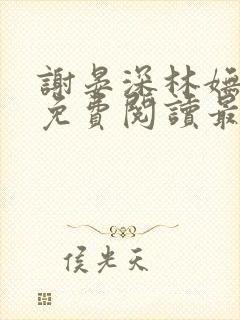 謝晏深林嫵
免費閱讀最
侯光天